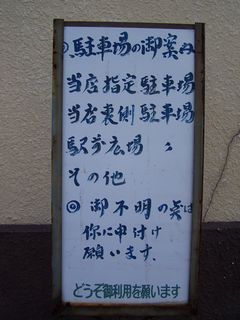 ◎駐車場の御案内
当店指定駐車場
当店裏側駐車場
駅前広場 〃
その他
◎御不明の矣は
係に申付け
願います。
どうぞ御利用を願います